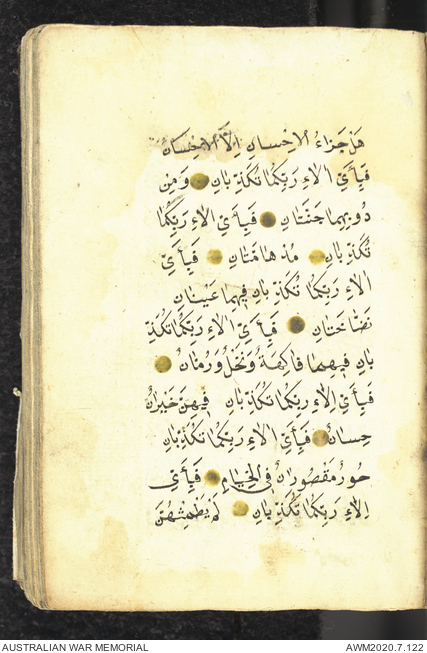 هَلْ جَزَاءُ الاِحْسَانِ اِلَّا الاِحْسَانُ
فَبِأَيِّ الاءِ رَبِّكُمَا تُكَذِّبَانِ وَمِنْ
دُونِهِمَا جَنَّتَانِ فَبِأَيِّ الاءِ رَبِّكُمَا
تُكَذِّبَانِ مُدْهَامَّتَانِ فَبِأَيِّ
الاءِ رَبِّكُمَا تُكَذِّبَانِ فِيهِمَا عَيْنَانِ
نَضَّاخَتَانِ فَبِأَيِّ الاءِ رَبِّكُمَا تُكَذِّ
بَانِ فِيهِمَا فَاكِهَةٌ وَنَخْلٌ وَرُمَّانٌ
فَبِأَيِّ الاءِ رَبِّكُمَا تُكَذِّبَانِ فِيهِنَّ خَيْرَاتٌ
حِسَانٌ فَبِأَيِّ الاءِ رَبِّكُمَا تُكَذِّبَانِ
حُورٌ مَقْصُورَاتٌ فِي الْخِيَامِ فَبِأَيِّ
الاءِ رَبِّكُمَا تُكَذِّبَانِ لَمْ يَطْمِثْهُنَّ
AUSTRALIAN WAR MEMORIAL AWM2020.7.122